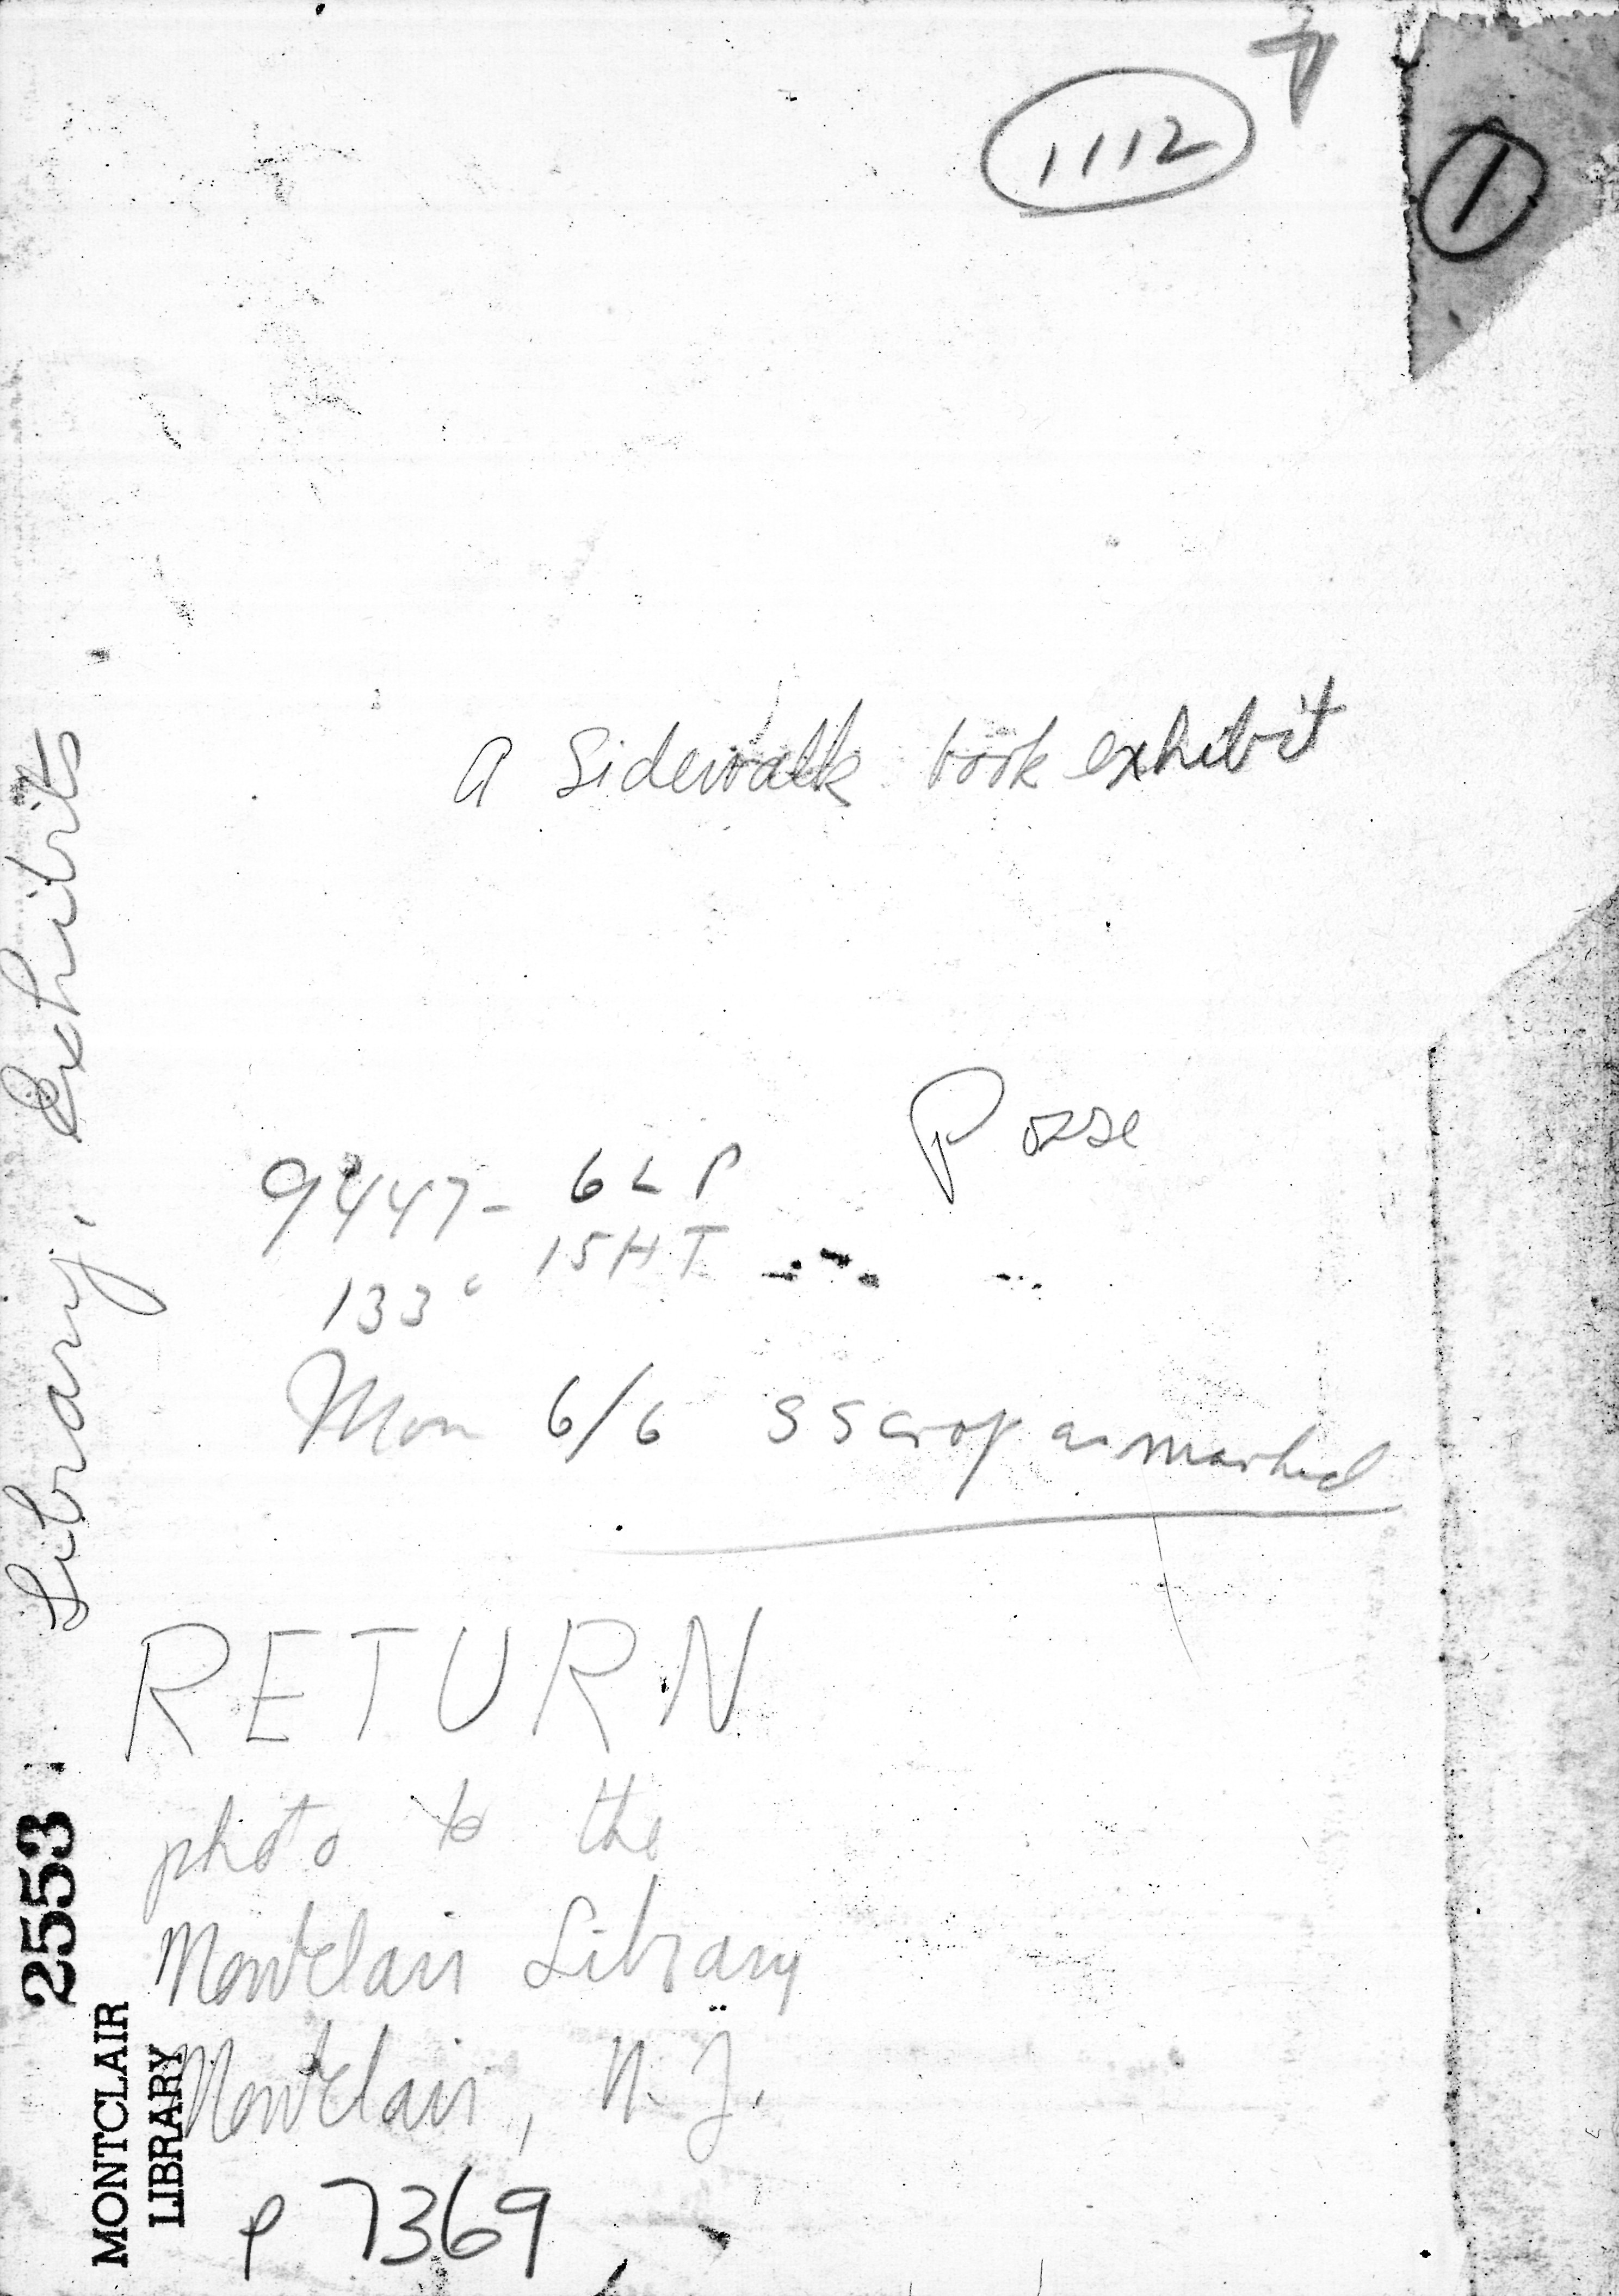 1112
1
a Sidewalk book exhibit
9447- 6LP
15HT
133
Mon 6/6 SS crop as marked
RETURN
photo to the
Montclair Library
Montclair, N.J.
p 7369
Library, Exhibits
2553
MONTCLAIR
LIBRARY